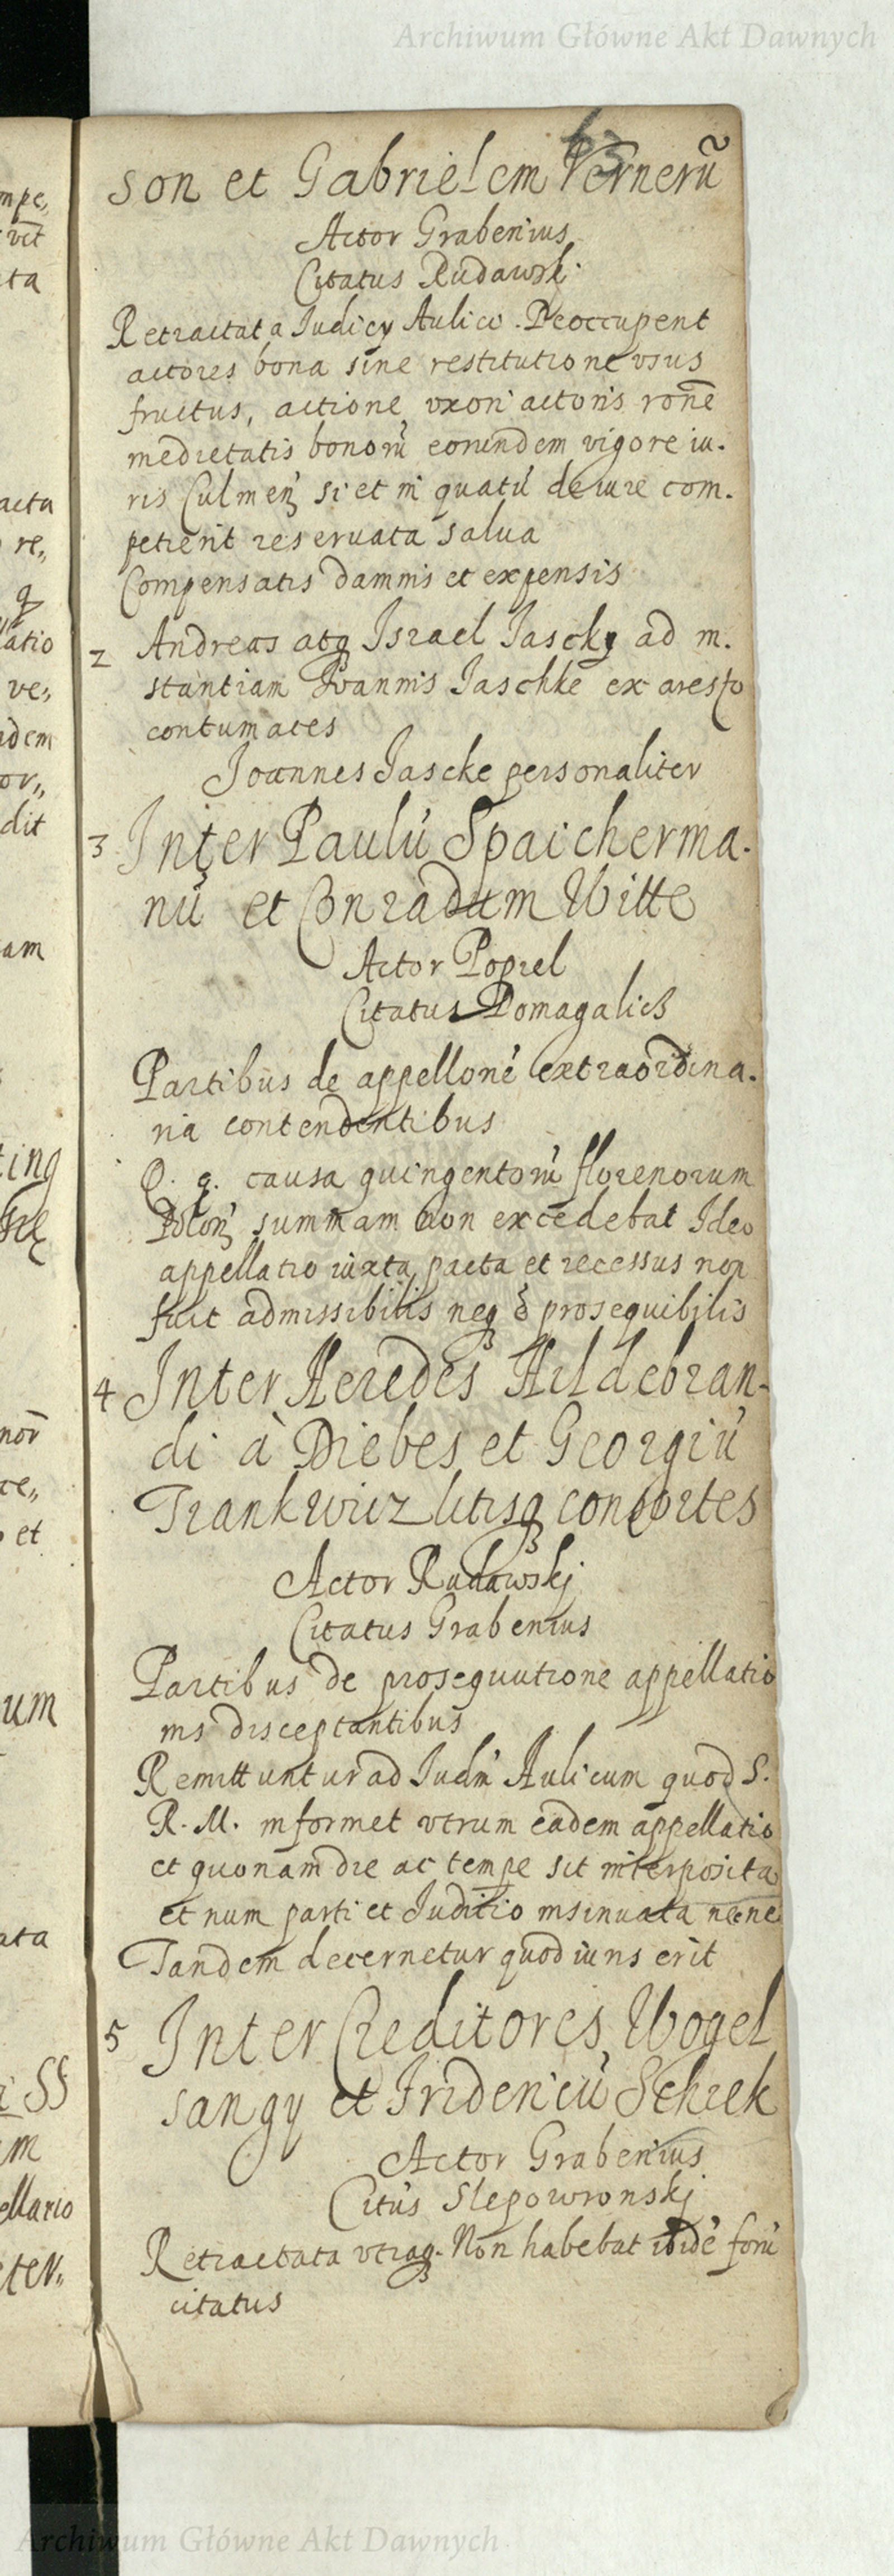 Archiwum Główne Akt Dawnych
63
son et Gabrielem Vernerũ
Actor Grabenius
Citatus Rudawski
Retractata Iudicy Aulici. Preoccupent
actores bona sine restitutione vsus
fructus, actione vxori actoris ronē
medietatis bonorū eorundem vigore iu.
ris Culmeñ si et in quatū de iure com.
petierit reseruata salua
Compensatis damnis et expensis
2 Andreas atq Israel Iascky ad in.
stantiam Ioannis Iaschke ex aresto
contumaces
Ioannes Iascke personaliter
3 Inter Paulū Spaicherma.
nū et Conradum Witte
Actor Popiel
Citatus Domagalicz
Partibus de appellonē extraordina.
ria contendentibus
Q. q. causa quingentorū florenorum
Poloñ summam non excedebat Ideo
appellatio iuxta pacta et recessus non
fuit admissibilis neq ē prosequibilis
4 Inter Heredes Hildebran-
di à Diebes et Georgiū
Trankwicz litisq consortes
Actor Rudawskj
Citatus Grabenius
Partibus de prosequutione appellatio
nis disceptantibus
Remittuntur ad Iudm Aulicum quod S.
R. M. informet vtrum eadem appellatio
et quonam die ac tempe sit interposita
et num parti et Iuditio insinuata necne
Tandem decernetur quod iuris erit
5 Inter Creditores Wogel
sangy et Fridericū Schiek
Actor Grabenius
Citūs Slepowronskj
Retractata vtraq. Non habebat ibidē forū
citatus
Archiwum Główne Akt Dawnych